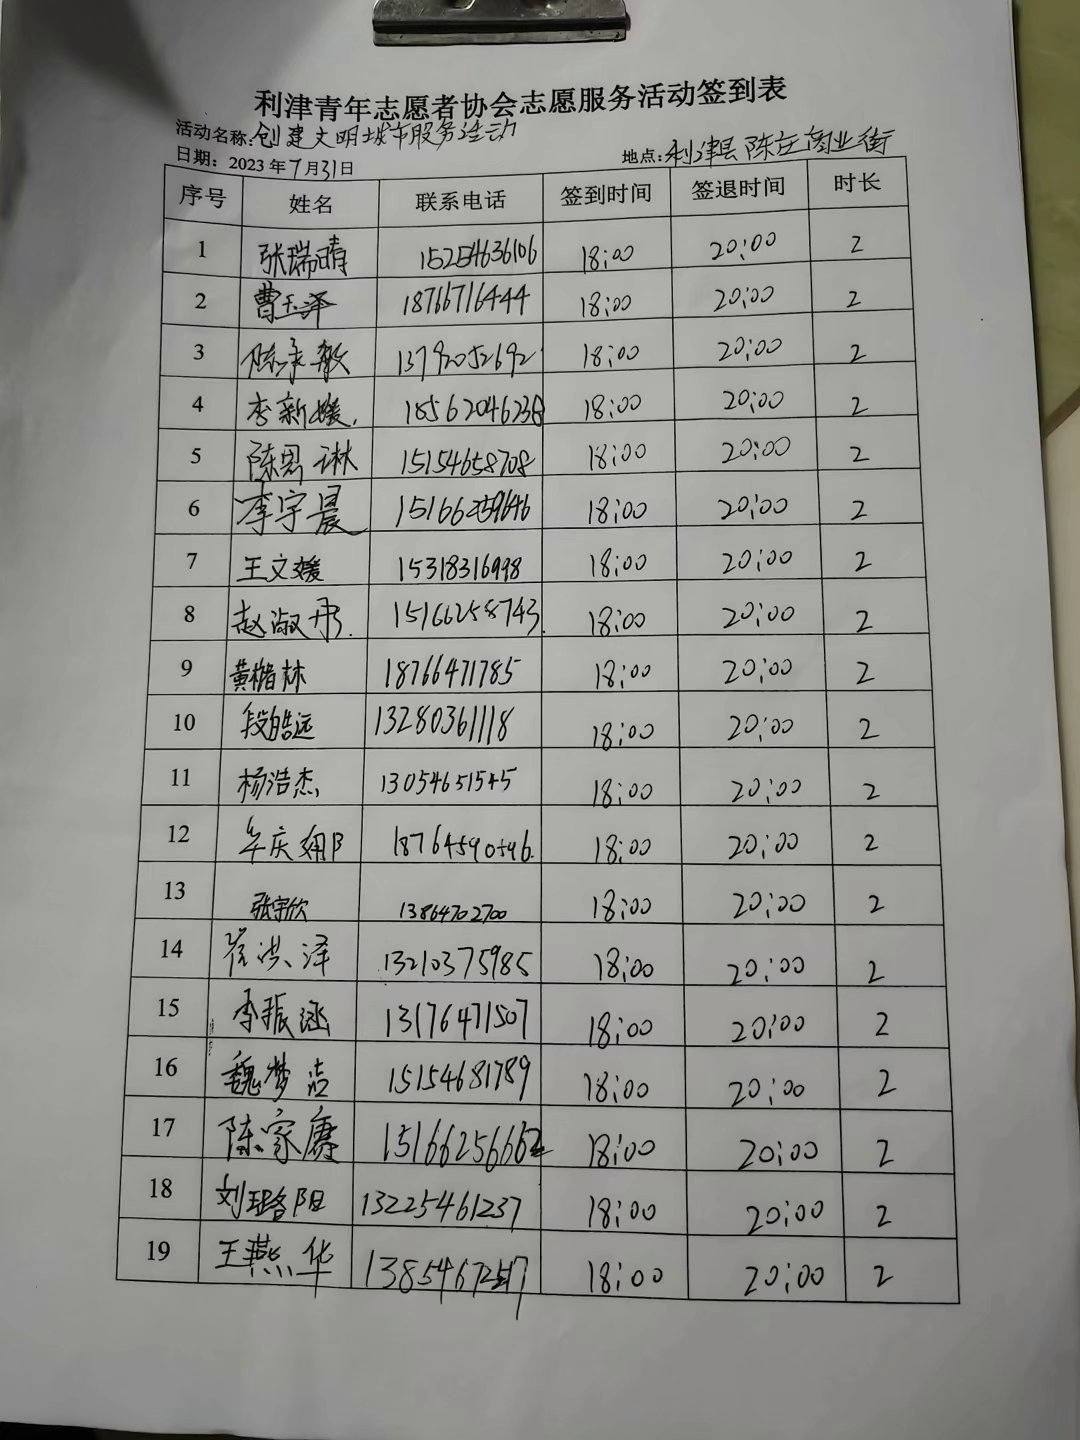 利津青年志愿者协会志愿服务活动签到表
活动名称:创建文明城市服务活动
日期: 2023年7月31日 地点:利津县陈庄商业街
序号 姓名 联系电话 签到时间 签退时间 时长
1 张瑞晴 15254636106 18:00 20:00 2
2 曹玉泽 18766716444 18:00 20:00 2
3 陈永敏 13792052692 18:00 20:00 2
4 李新媛 18562046238 18:00 20:00 2
5 陈思琳 15154658708 18:00 20:00 2
6 李宇晨 15166259646 18:00 20:00 2
7 王文媛 15318316998 18:00 20:00 2
8 赵淑彤 15166258743 18:00 20:00 2
9 黄楷林 18766471785 18:00 20:00 2
10 段皓远 13280361118 18:00 20:00 2
11 杨浩杰 13054651545 18:00 20:00 2
12 18764590596 18:00 20:00 2
13 张宇欣 13864702700 18:00 20:00 2
14 崔洪泽 13210375985 18:00 20:00 2
15 李振涵 13176471507 18:00 20:00 2
16 魏梦洁 15154681789 18:00 20:00 2
17 陈家赓 15166256662 18:00 20:00 2
18 刘珞阳 13225461237 18:00 20:00 2
19 王燕华 18:00 20:00 2